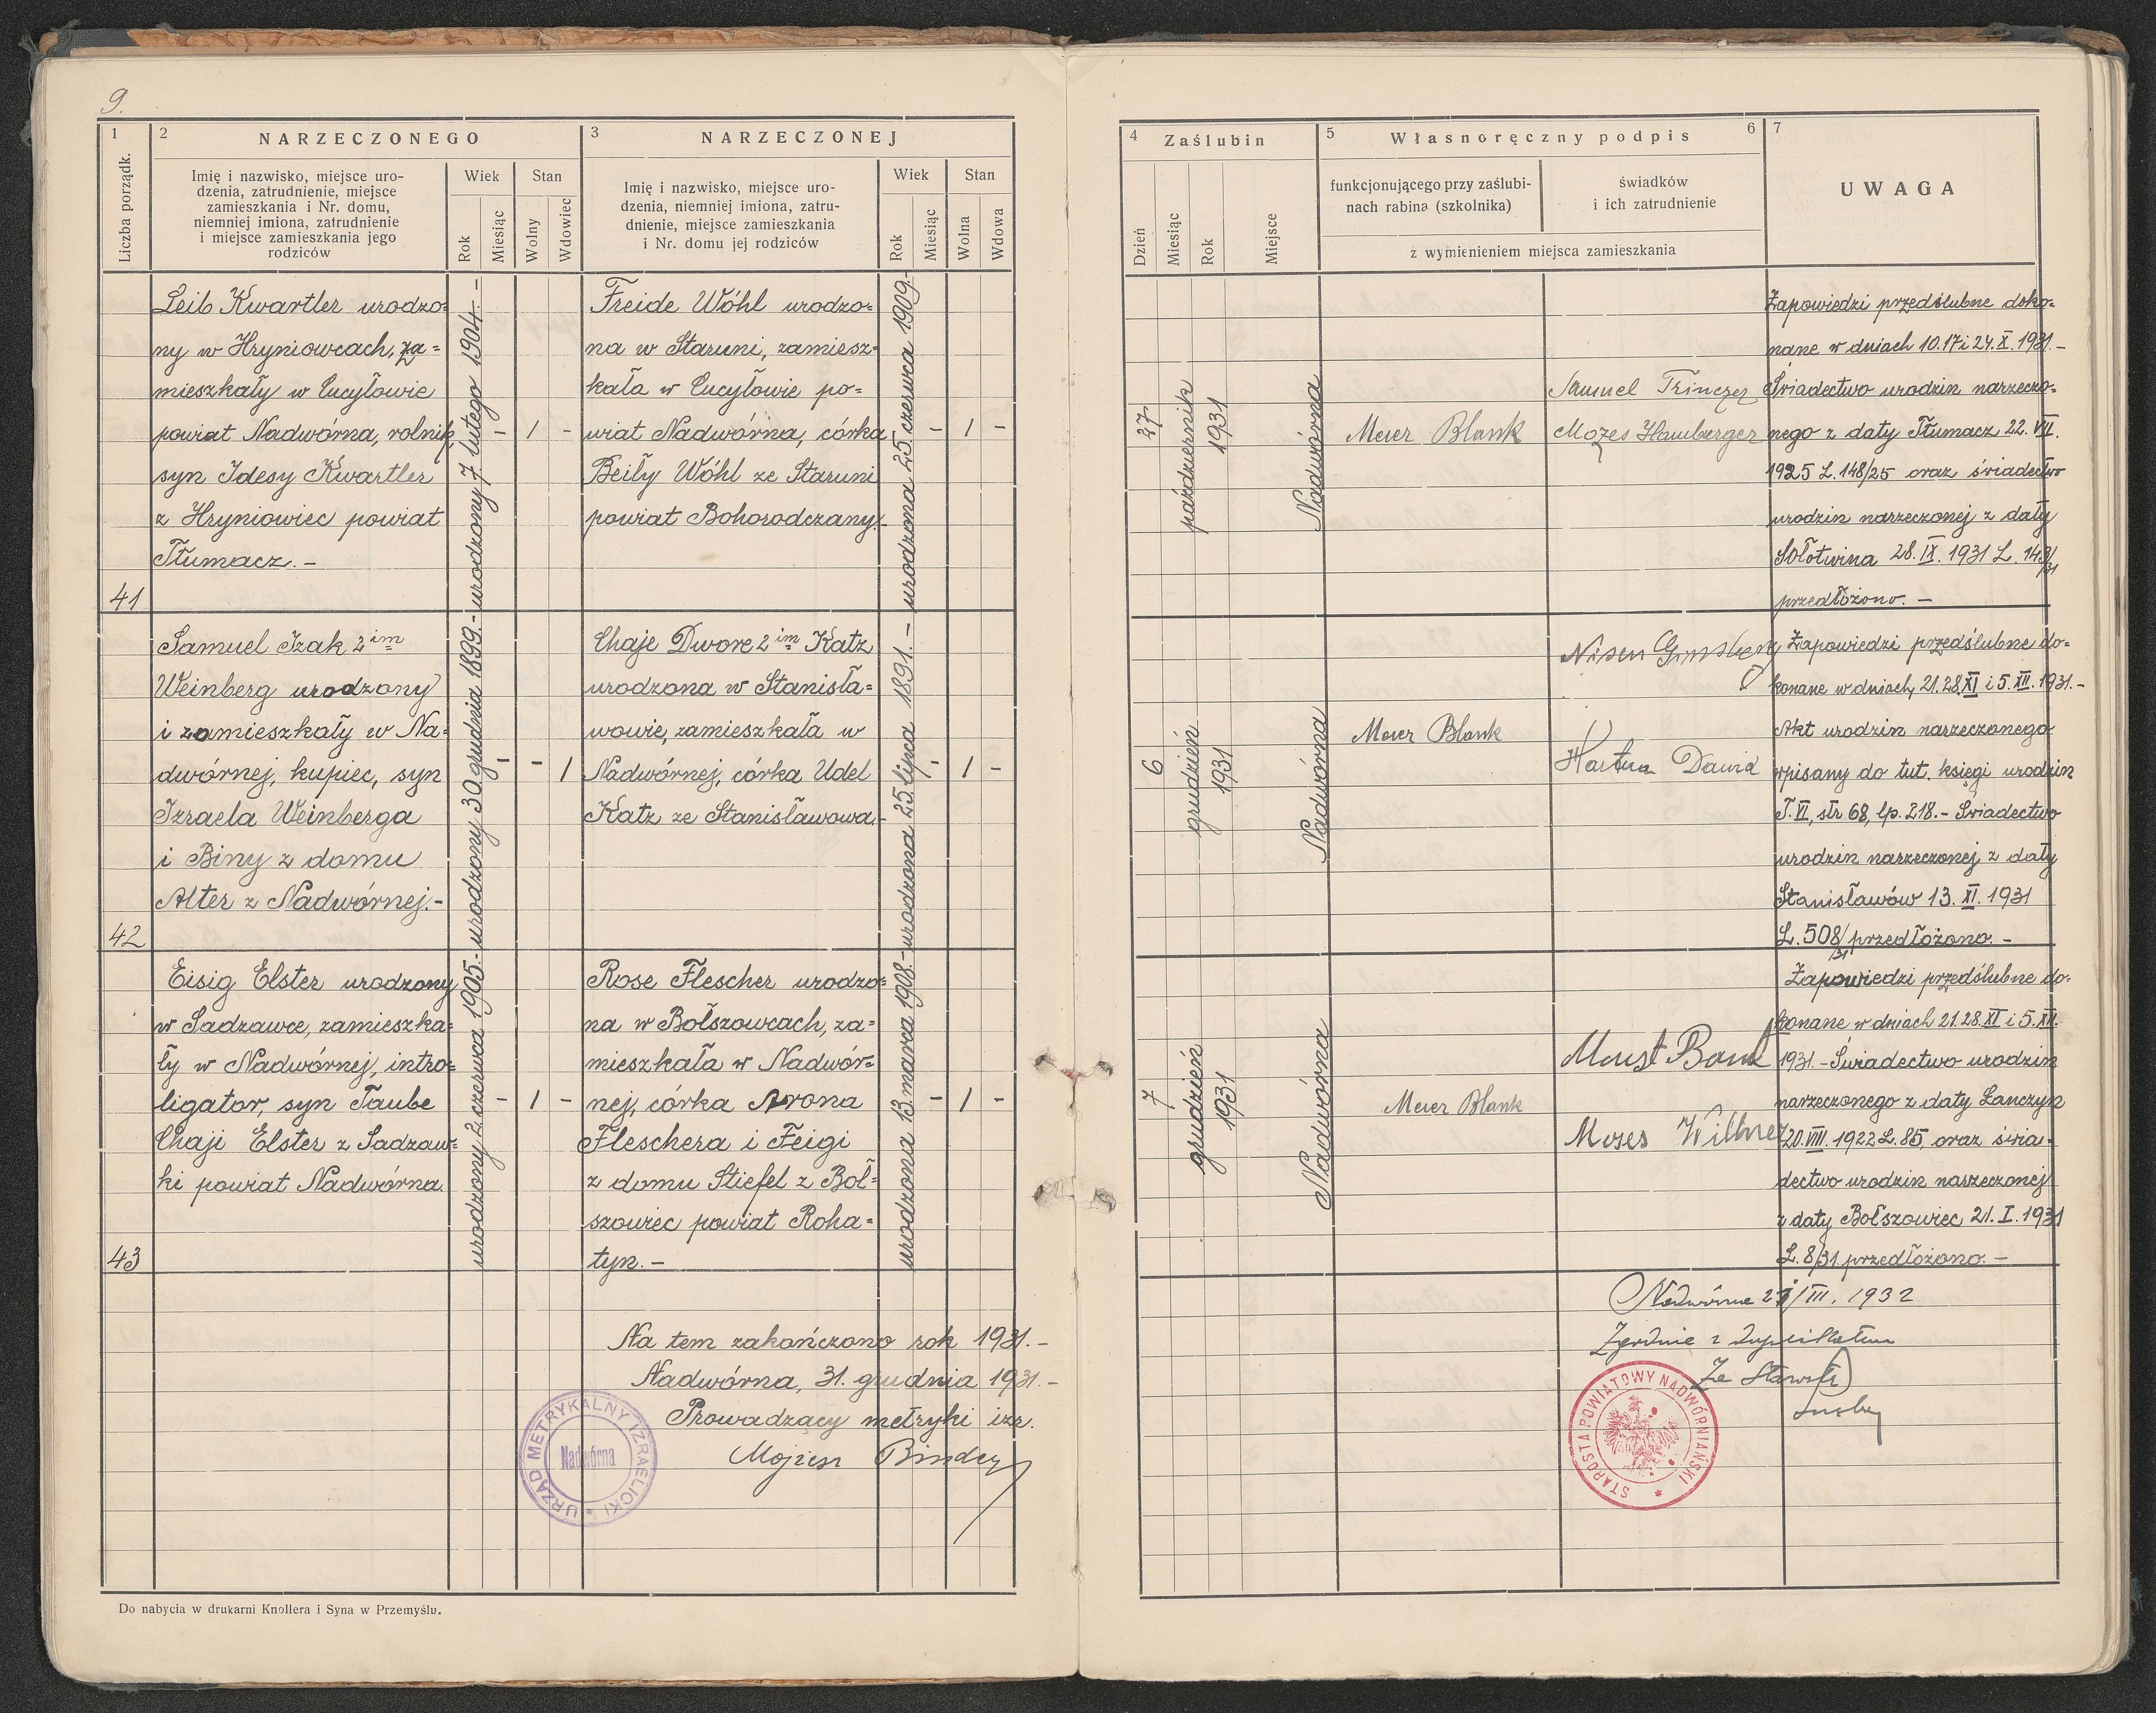 9.
1
2
NARZECZONEGO
3
NARZECZONEJ
Liczba porządk.
Imię i nazwisko, miejsce uro-
dzenia, zatrudnienie, miejsce
zamieszkania i Nr. domu,
niemniej imiona, zatrudnienie
i miejsce zamieszkania jego
rodziców
Wiek
Stan
Rok
Miesiąc
Wolny
Wdowiec
Imię i nazwisko, miejsce uro-
dzenia, niemniej imiona, zatru-
dnienie, miejsce zamieszkania
i Nr. domu jej rodziców
Wiek
Stan
Rok
Miesiąc
Wolna
Wdowa
41
Leib Kwartler urodzo=
ny w Hryniowcach, za=
mieszkały w Łucyłowie
powiat Nadwórna, rolnik,
syn Idesy Kwartler
z Hryniowiec powiat
Tłumacz. -
urodzony 7 lutego 1904. -
- 1 -
Freide Wóhl urodzo=
na w Staruni, zamiesz=
kała w Łucyłowie po=
wiat Nadwórna, córka
Beily Wóhl ze Staruni
powiat Bohorodczany.-
urodzona 25 czerwca 1909-
- 1 -
42
Samuel Izak 2im
Weinberg urodzony
i zamieszkały w Na=
dwórnej, kupiec, syn
Izraela Weinberga
i Biny z domu
Alter z Nadwórnej.-
urodzony 30 grudnia 1899.-
- - 1
Chaje Dwore 2im Katz
urodzona w Stanisła=
wowie, zamieszkała w
Nadwórnej, córka Udel
Katz ze Stanisławowa.-
urodzona 25. lipca 1891. -
- 1 -
43
Eisig Elster urodzony
w Sadzawce, zamieszka=
ły w Nadwórnej, intro=
ligator, syn Taube
Chaji Elster z Sadzaw=
ki powiat Nadwórna.
urodzony 2 czerwca 1905.-
- 1 -
Rose Flescher urodzo=
na w Bołszowcach, za=
mieszkała w Nadwór=
nej, córka Arona
Fleschera i Feigi
z domu Stiefel z Boł=
szowiec powiat Roha=
tyn. -
urodzona 13. marca 1908.-
- 1 -
Na tem zakończono rok 1931.-
Nadwórna, 31. grudnia 1931.-
Prowadzący metryki izr.
Mojżesz Binder
URZĄD METRYKALNY IZRAELICKI
Nadwórna
Do nabycia w drukarni Knollera i Syna w Przemyślu.
4
Zaślubin
5
Własnoręczny podpis
6
7
Dzień
Miesiąc
Rok
Miejsce
funkcjonującego przy zaślubi-
nach rabina (szkolnika)
świadków
i ich zatrudnienie
z wymienieniem miejsca zamieszkania
UWAGA
27
październik
1931
Nadwórna
Meier Blank
Samuel
Mozes Hamberger
Zapowiedzi przedślubne doko=
nane w dniach 10.17 i 24. X. 1931.-
Świadectwo urodzin narzeczo=
nego z daty Tłumacz 22. VII.
1925 L. 148/25 oraz świadectwo
urodzin narzeczonej z daty
Sołotwina 28. IX. 1931 L. 143/31
przedłożono. -
6
grudzień
1931
Nadwórna
Meier Blank
Nisen
Dawid
Zapowiedzi przedślubne do-
konane w dniach 21.28.XI i 5.XII. 1931.-
Akt urodzin narzeczonego
wpisany do tut. księgi urodzin
T. VI, str. 68, lp. 218.- Świadectwo
urodzin narzeczonej z daty
Stanisławów 13. XI. 1931
L. 508/31 przedłożono. -
7
grudzień
1931
Nadwórna
Meier Blank
Moses Willner
Zapowiedzi przedślubne do-
konane w dniach 21.28.XI i 5.XII.
1931.- Świadectwo urodzin
narzeczonego z daty Łanczyn
20.VIII. 1922 L. 85, oraz świa-
dectwo urodzin narzeczonej
z daty Bołszowiec 21. I. 1931
L. 8/31 przedłożono. -
Nadwórna /III. 1932
Zgodnie z duplikatem
Za Starostę
STAROSTA POWIATOWY NADWÓRNIAŃSKI